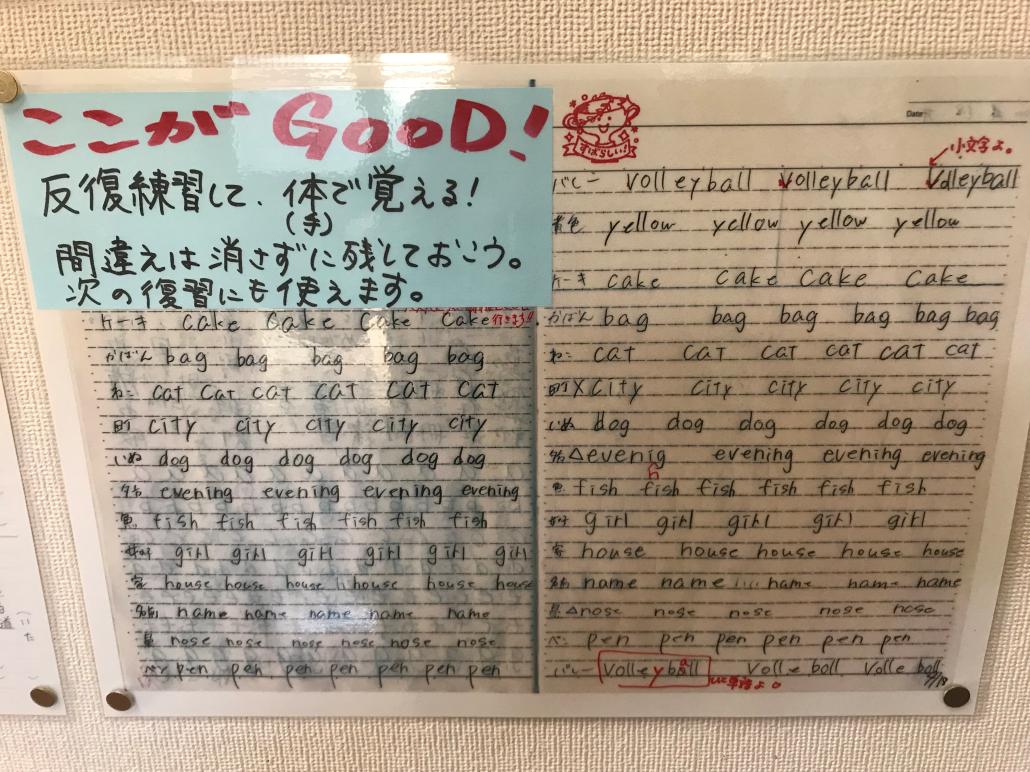 ここが GOOD!
反復練習して、体で覚える!
(手)
間違えは消さずに残しておこう。
次の復習にも使えます。
行きます!!
ケーキ cake cake cake cake
かばん bag bag bag bag bag
ねこ cat cat cat cat cat cat
町 city city city city city
いぬ dog dog dog dog dog dog
evening evening evening evening
魚 fish fish fish fish fish fish
girl girl girl girl girl girl
家 house house house house house house
名前 name name name name name
鼻 nose nose nose nose nose nose
ペン pen pen pen pen pen pen pen
すばらしい!
Date
小文字よ。
バレー volleyball volleyball Volleyball
黄色 yellow yellow yellow yellow
ケーキ cake cake cake cake
かばん bag bag bag bag bag bag
ねこ cat cat cat cat cat cat
町 X city city city city city
いぬ dog dog dog dog dog dog
△ evenig evening evening evening
n
魚 fish fish fish fish fish fish
girl girl girl girl girl
家 house house house house house
名前 name name name name name
鼻 △ nose nose nose nose nose
ペン pen pen pen pen pen pen
バレー volleyball volle boll volle boll